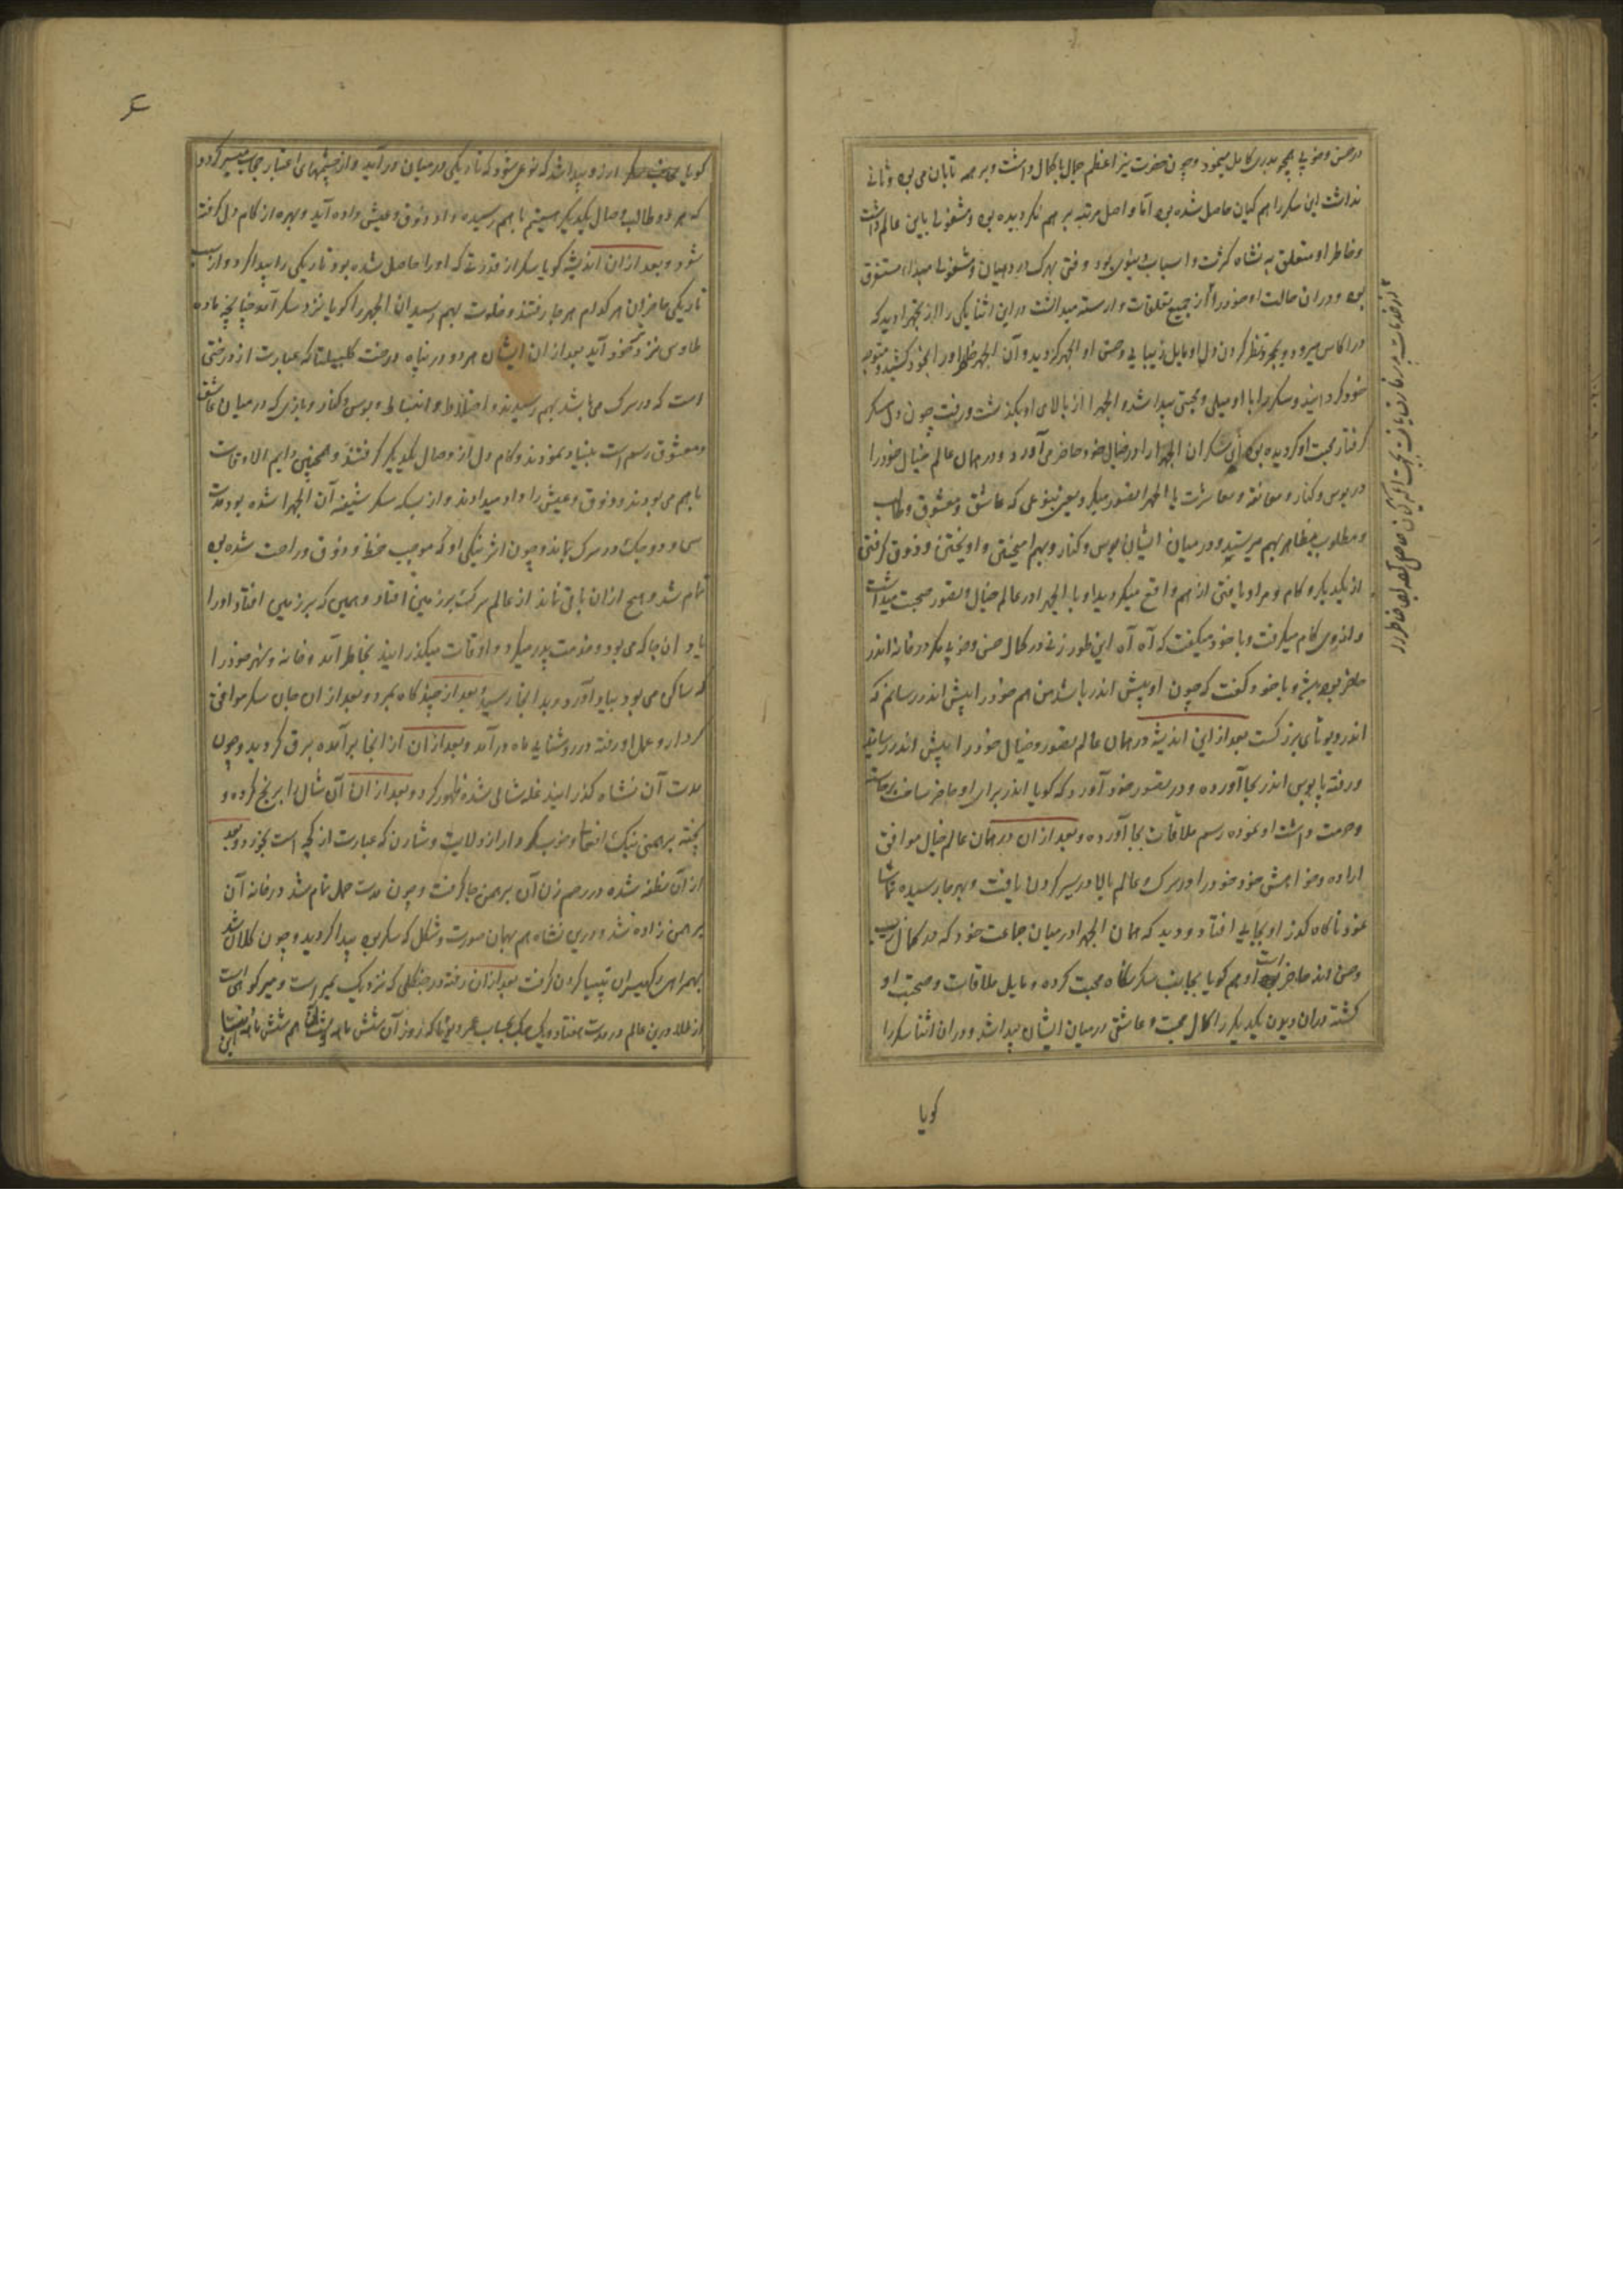 در حسن و خوبی همچو بدری کامل مینمود و چون حضرت نیر اعظم جمال با کمال داشت و بر همه تابان می بود و ثانی
نداشت این سکر را هم کیان حاصل شده بود اما واصل مرتبه برهم نگردیده بود و مشغولی باین عالم داشت
و خاطر او متعلق به نشاه کثرت و اسباب دنیوی بود وقتی بهرک در دهیان و مشغولی مبدا مستغرق
بود و در آن حالت او خود را از جمیع تعلقات وارسته میدانست در این اثنا یکی را از اپچهرا دید که
در اکاس میرود و بمجرد نظر کردن دل او مایل زیبایی و حسن او اپچهر گردید و آن اپچهر خاطر او را بخود کشید و متوجه
خود گردانید و سکر را با او میلی و محبتی پیدا شد و اپچهرا از بالای او بگذشت و رفت چون دل سکر
گرفتار محبت او گردیده بود سکر آن اپچهرا را در خیال خود حاضر می آورد و در همان عالم خیال خود را
در بوس و کنار و معانقه و معاشرت با اپچهرا تصور میکرد یعنی بنوعی که عاشق و معشوق و طالب
و مطلوب بظاهر بهم میرسند و در میان ایشان بوس و کنار و بهم آمیختن و آویختن و ذوق گرفتن
از یکدیگر و کام و مراد یافتن از هم واقع میگردید او با اپچهرا در عالم خیال و تصور صحبت میداشت
و از وی کام میگرفت و با خود میگفت که آه آه این طور زنی در کمال حسن و خوبی مگر در خانه اندر
حاضر بوده باشد و با خود گفت که چون او پیش اندر باشد من هم خود را پیش اندر رسانم که
اندر دیوتای بزرگست بعد از این اندیشه در همان عالم تصور و خیال خود را پیش اندر رسانید
و رفته پابوس اندر بجا آورده و در تصور خود آورد که گویا اندر برای او حاضر ساخت برخاست
و حرمت داشت او نموده رسم ملاقات بجا آورده و بعد از آن در همان عالم خیال موافق
اراده و خواهش خود خود را در سرک و عالم بالا در سیر کردن یافت و بهر جا رسیده تماشا
نمود ناگاه گذر او بجایی افتاد و دید که همان اپچهرا در میان جماعت خود که در کمال زیب
و حسن اند حاضر است او هم گویا بجانب سکر نگاه محبت کرده و مایل ملاقات و صحبت او
گشته در آن دیدن یکدیگر را کمال محبت و عاشقی در میان ایشان پیدا شد و در آن اثنا سکر را
گویا
گویا آرزو پیدا شد که نوعی شود که تاریکی در میان در آید و از چشمهای اغیار حجاب میسر گردد
که هر دو طالب وصال یکدیگر هستیم با هم رسیده داد ذوق و عیش داده آید و بهره از کام دل گرفته
شود و بعد از آن اندیشه گویا سکر از قدرتی که او را حاصل شده بود تاریکی را پیدا کرد و از سبب
تاریکی حاضران هر کدام هر جا رفتند و خلوت بهم رسید آن اپچهرا گویا نزد سکر آمد چنانچه ماده
طاوس نزد نر خود آید بعد از آن ایشان هر دو در پناه درخت کلپ لتا که عبارت از درختی
است که در سرک می باشد بهم رسیدند و اختلاط و انبساط و بوس و کنار و بازی که در میان عاشق
و معشوق رسم است بنیاد نمودند و کام دل از وصال یکدیگر گرفتند و همچنین دایم الاوقات
با هم می بودند و ذوق و عیش را داد میدادند و از بسکه سکر شیفته آن اپچهرا شده بود مدت
سی و دو جک در سرک بماند و چون اثر نیکی او که موجب حظ و ذوق و راحت شده بود
تمام شد و هیچ از آن باقی نماند از عالم سرک برزمین افتاد و همین که برزمین افتاد او را
یاد آن جا که می بود و خدمت پدر میکرد و اوقات میگذرانید بخاطر آمد و خانه و شهر خود را
که ساکن می بود بیاد آورد و بدانجا رسید بعد از چند گاه بمرد و بعد از آن جان سکر موافق
کردار و عمل او رفته در روشنایی ماه درآمد و بعد از آن از انجا برآمده برق گردید و چون
مدت آن نشاه گذرانید غله شالی شده ظهور کرد و بعد از آن آن شالی را برنج کرده و
پخته برهمنی نیک افعال و خوب کردار از ولایت دشارن که عبارت از است بخورد و بعد
از آن نطفه شده در رحم زن آن برهمن جا گرفت و چون مدت حمل تمام شد در خانه آن
برهمن زاده شد و درین نشاه هم بهمان صورت و شکل که سکر بود پیدا گردید و چون کلان شد
بهمراهی رکهیسران تپسیا کردن گرفت بعد از آن رفته در جنگلی که نزدیک بمیر است و میر کوهی است
از طلا درین عالم در مدت هفتاد و یک جک بحساب عمر دیوتا که روز آن شش ماه و شب آن هم شش ماه است